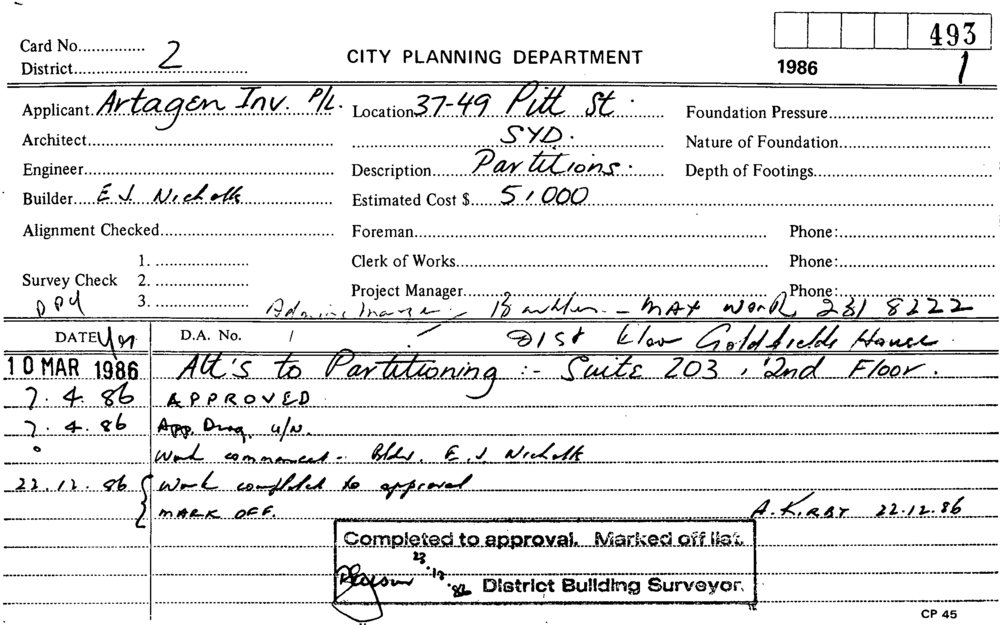 493
Card No............... 2
CITY PLANNING DEPARTMENT
District.................................
1986 1
Applicant Artagen Inv. P/L. Location 37-49 Pitt St. Foundation Pressure
Architect SYD. Nature of Foundation
Engineer Description Partitions. Depth of Footings
Builder E J. Nicholls Estimated Cost $ 51000
Alignment Checked Foreman Phone:
1. Clerk of Works Phone:
Survey Check 2.
Project Manager Phone:
3. MAX WORK 231 8222
DATE D.A. No. 1 / 21st Floor Goldfields House.
10 MAR 1986 Alt's to Partitioning :- Suite 203, 2nd Floor.
7. 4. 86 APPROVED
7. 4. 86 App. Drwg. U/N.
Work commenced - Bldr. E. J. Nicholls
22.12.86 Work completed to approval
MARK OFF. A. KIRBY 22.12.86
Completed to approval. Marked off list.
23.12.86 District Building Surveyor.
CP 45